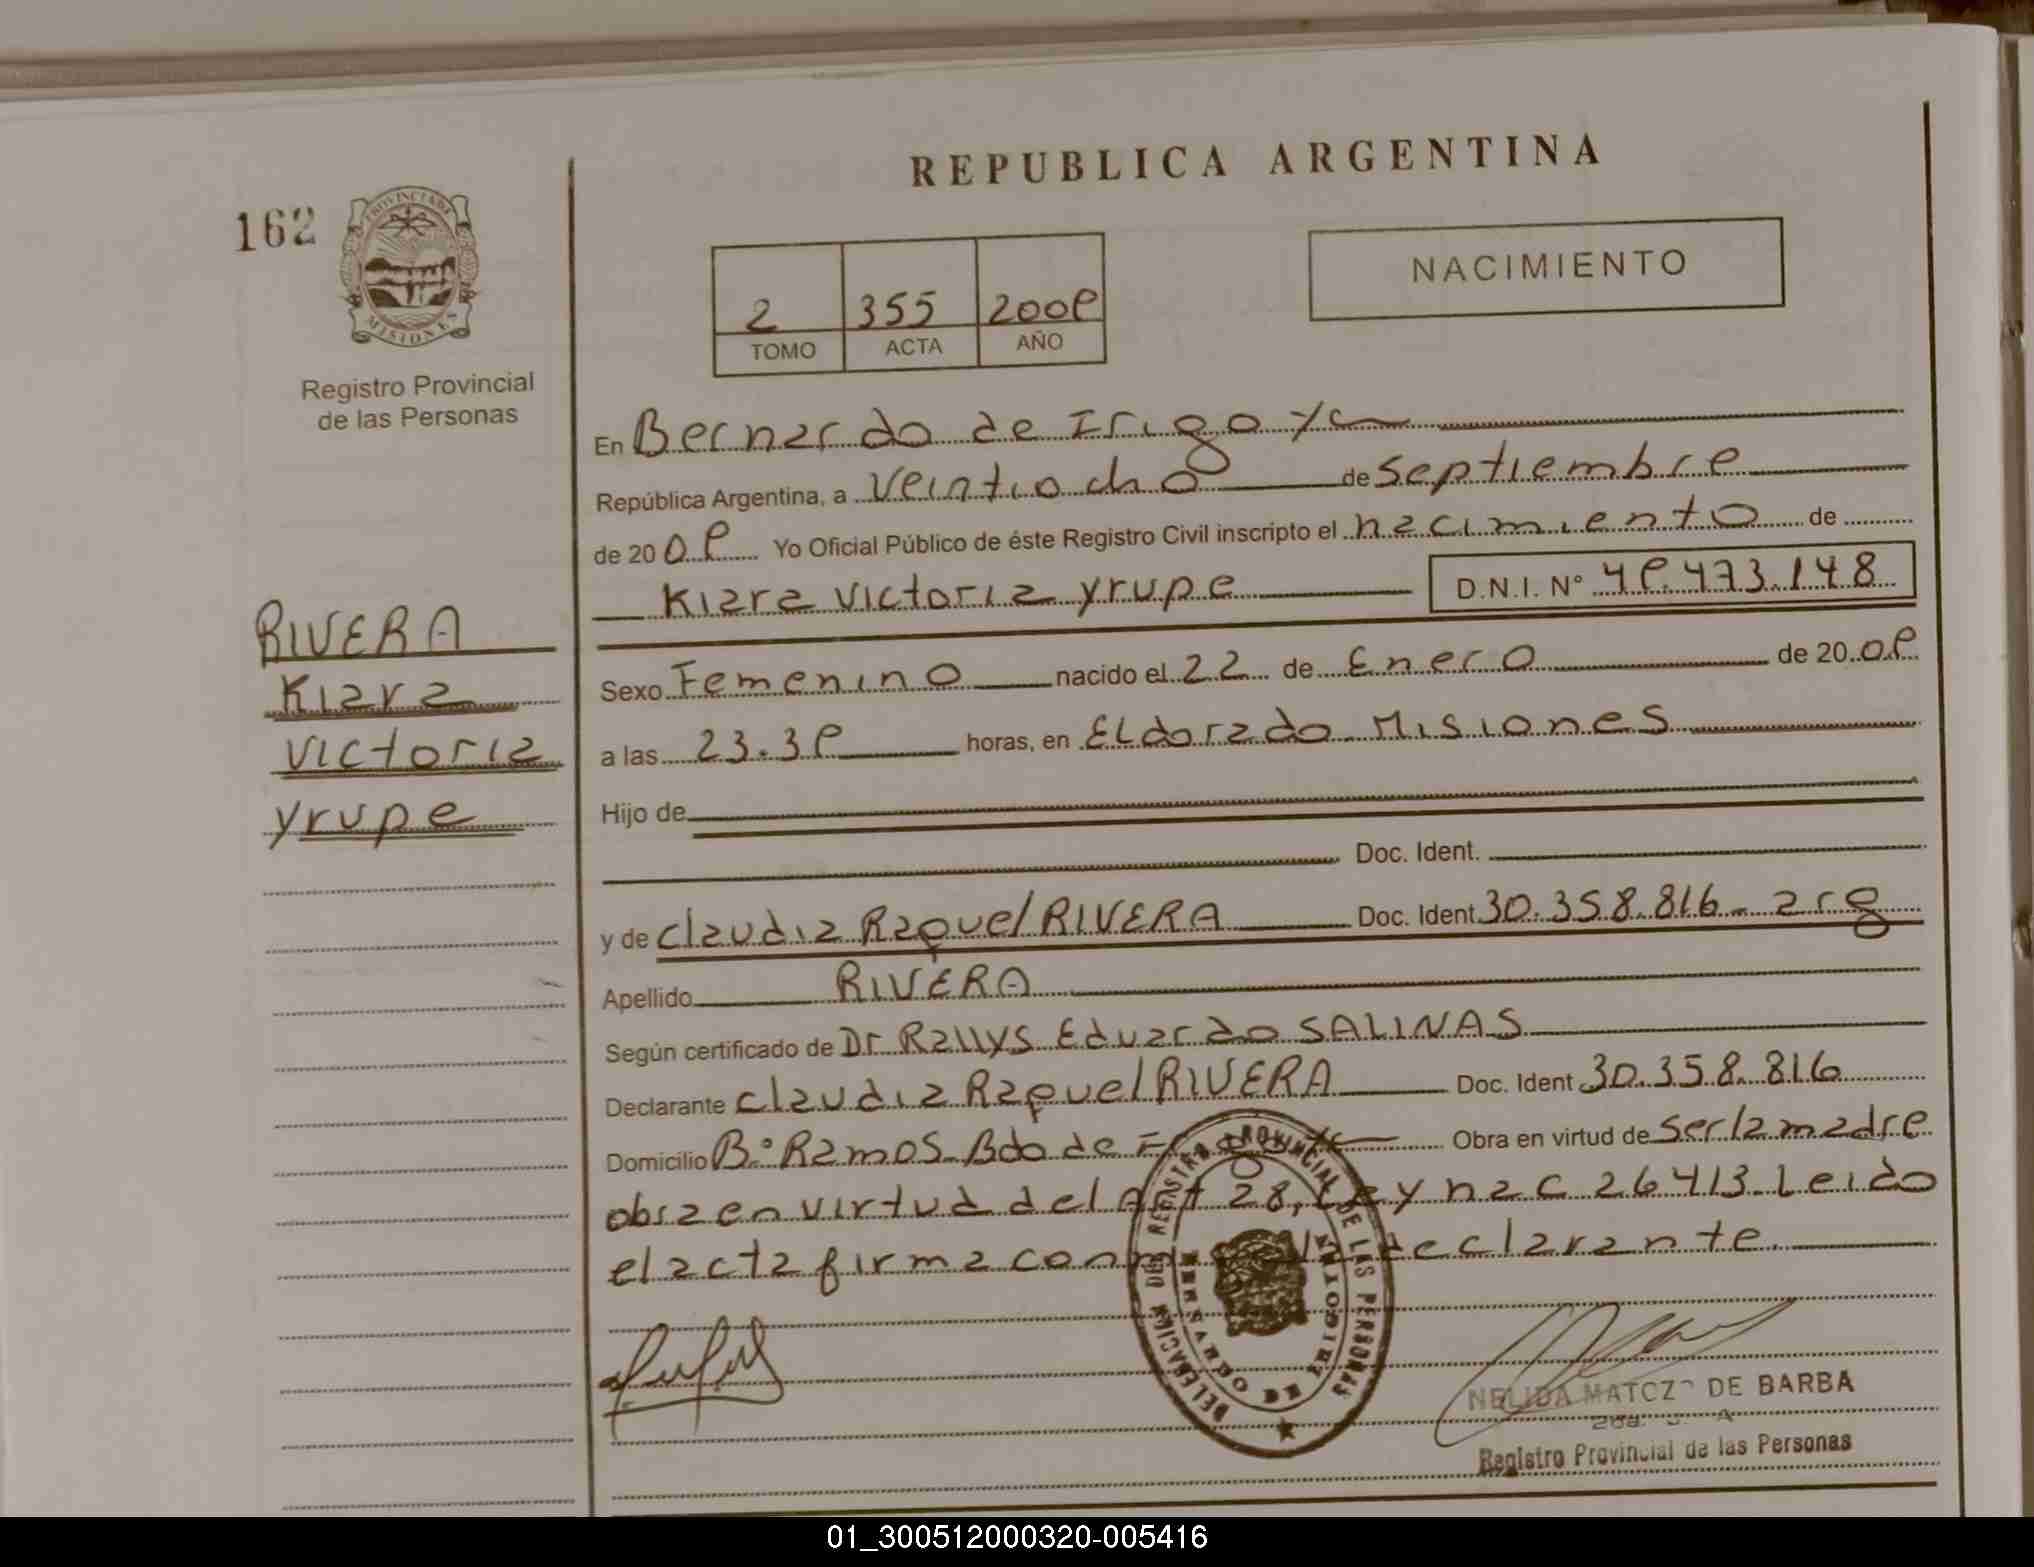 REPUBLICA ARGENTINA
162
PROVINCIA DE MISIONES
Registro Provincial
de las Personas
2 355 2009
TOMO ACTA AÑO
NACIMIENTO
En Bernardo de Irigoyen
República Argentina, a Veintiocho de Septiembre
de 2009 Yo Oficial Público de éste Registro Civil inscripto el nacimiento de
Kiara Victoria Yrupe D.N.I. N° 49.473.148
RIVERA
Kiara
Victoria
Yrupe
Sexo Femenino nacido el 22 de Enero de 2009
a las 23.39 horas, en Eldorado Misiones
Hijo de
Doc. Ident.
y de Claudia Raquel RIVERA Doc. Ident 30.358.816 - arg
Apellido RIVERA
Según certificado de Dr Rallys Eduardo SALINAS
Declarante Claudia Raquel RIVERA Doc. Ident 30.358.816
Domicilio B° Ramos Bdo de Irigoyen Obra en virtud de ser la madre
obra en virtud del Art 28, Ley nac 26413. Leido
el acta firma conmigo la declarante.
DELEGACION DEL REGISTRO PROVINCIAL DE LAS PERSONAS
BERNARDO DE IRIGOYEN
NELIDA MATOZO DE BARBA
Registro Provincial de las Personas
01_300512000320-005416